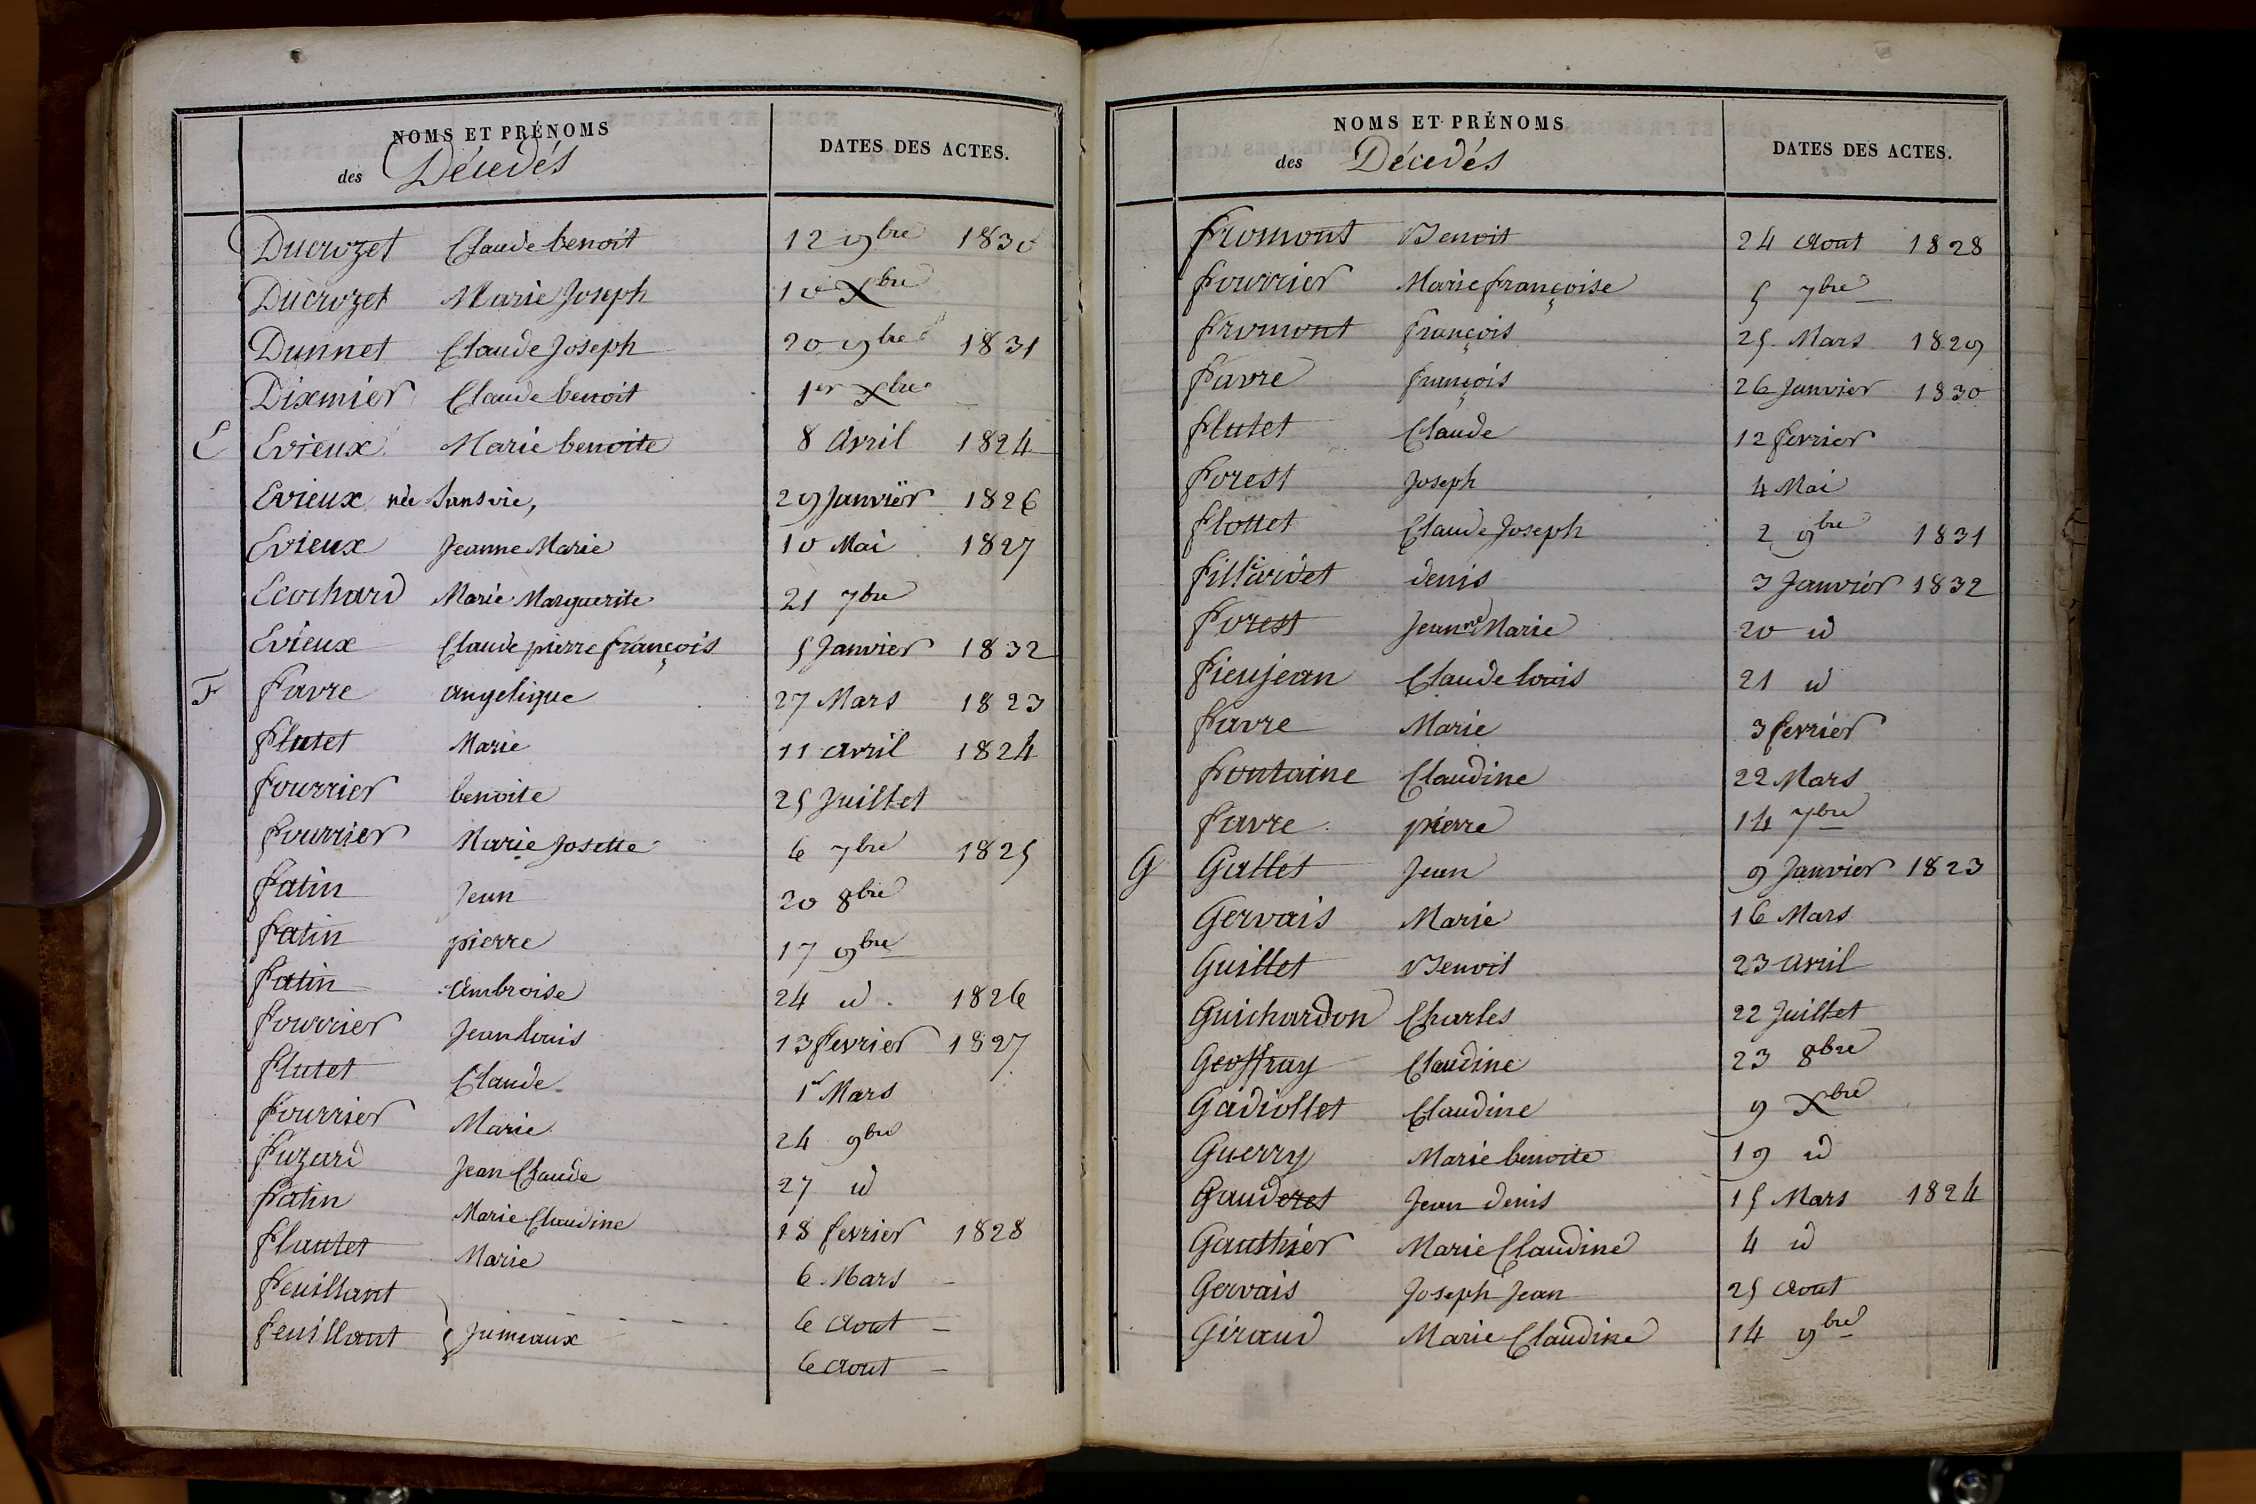 NOMS ET PRÉNOMS
des Décédés
DATES DES ACTES.
Ducrozet Claude benoit 12 9bre 1830
Ducrozet Marie Joseph 10 Xbre
Dunnet Claude Joseph 20 9bre 1831
Dixmier Claude benoit 1er Xbre
E Evieux Marie benoite 8 Avril 1824
Evieux née Sansvie, 29 Janvier 1826
Evieux Jeanne Marie 10 Mai 1827
Ecochard Marie Marguerite 21 7bre
Evieux Claude pierre françois 5 Janvier 1832
F Favre angelique 27 Mars 1823
Flutet Marie 11 avril 1824
Fourrier benoite 25 Juillet
Fourrier Marie Josette 6 7bre 1825
Fatin Jean 20 8bre
Fatin pierre 17 9bre
Fatin Ambroise 24 id 1826
Fourrier Jean louis 13 fevrier 1827
Flutet Claude 1r Mars
Fourrier Marie 24 9bre
Fuzard Jean Claude 27 id
Fatin Marie Claudine 18 fevrier 1828
Flautet Marie 6 Mars –
Feuillant 6 Aout –
Feuillant } Jumeaux 6 Aout –
NOMS ET PRÉNOMS
des Décédés
DATES DES ACTES.
Fromont Benoit 24 Aout 1828
Fourrier Marie françoise 5 7bre
Fromont françois 25 Mars 1829
Favre françois 26 Janvier 1830
Flutet Claude 12 fevrier
Forest Joseph 4 Mai
Flottet Claude Joseph 2 9bre 1831
Fillardet denis 3 Janvier 1832
Forest Jeanne Marie 20 id
Fieujean Claude louis 21 id
Favre Marie 3 fevrier
Fontaine Claudine 22 Mars
Favre pierre 14 7bre
G Gallet Jean 9 Janvier 1823
Gervais Marie 16 Mars
Guillet Benoit 23 avril
Guichardon Charles 22 Juillet
Geoffray Claudine 23 8bre
Gadiollet Claudine 9 Xbre
Guerry Marie benoite 19 id
Gauderet Jean denis 15 Mars 1824
Gauthier Marie Claudine 4 id
Gervais Joseph Jean 25 Aout
Giraud Marie Claudine 14 9bre